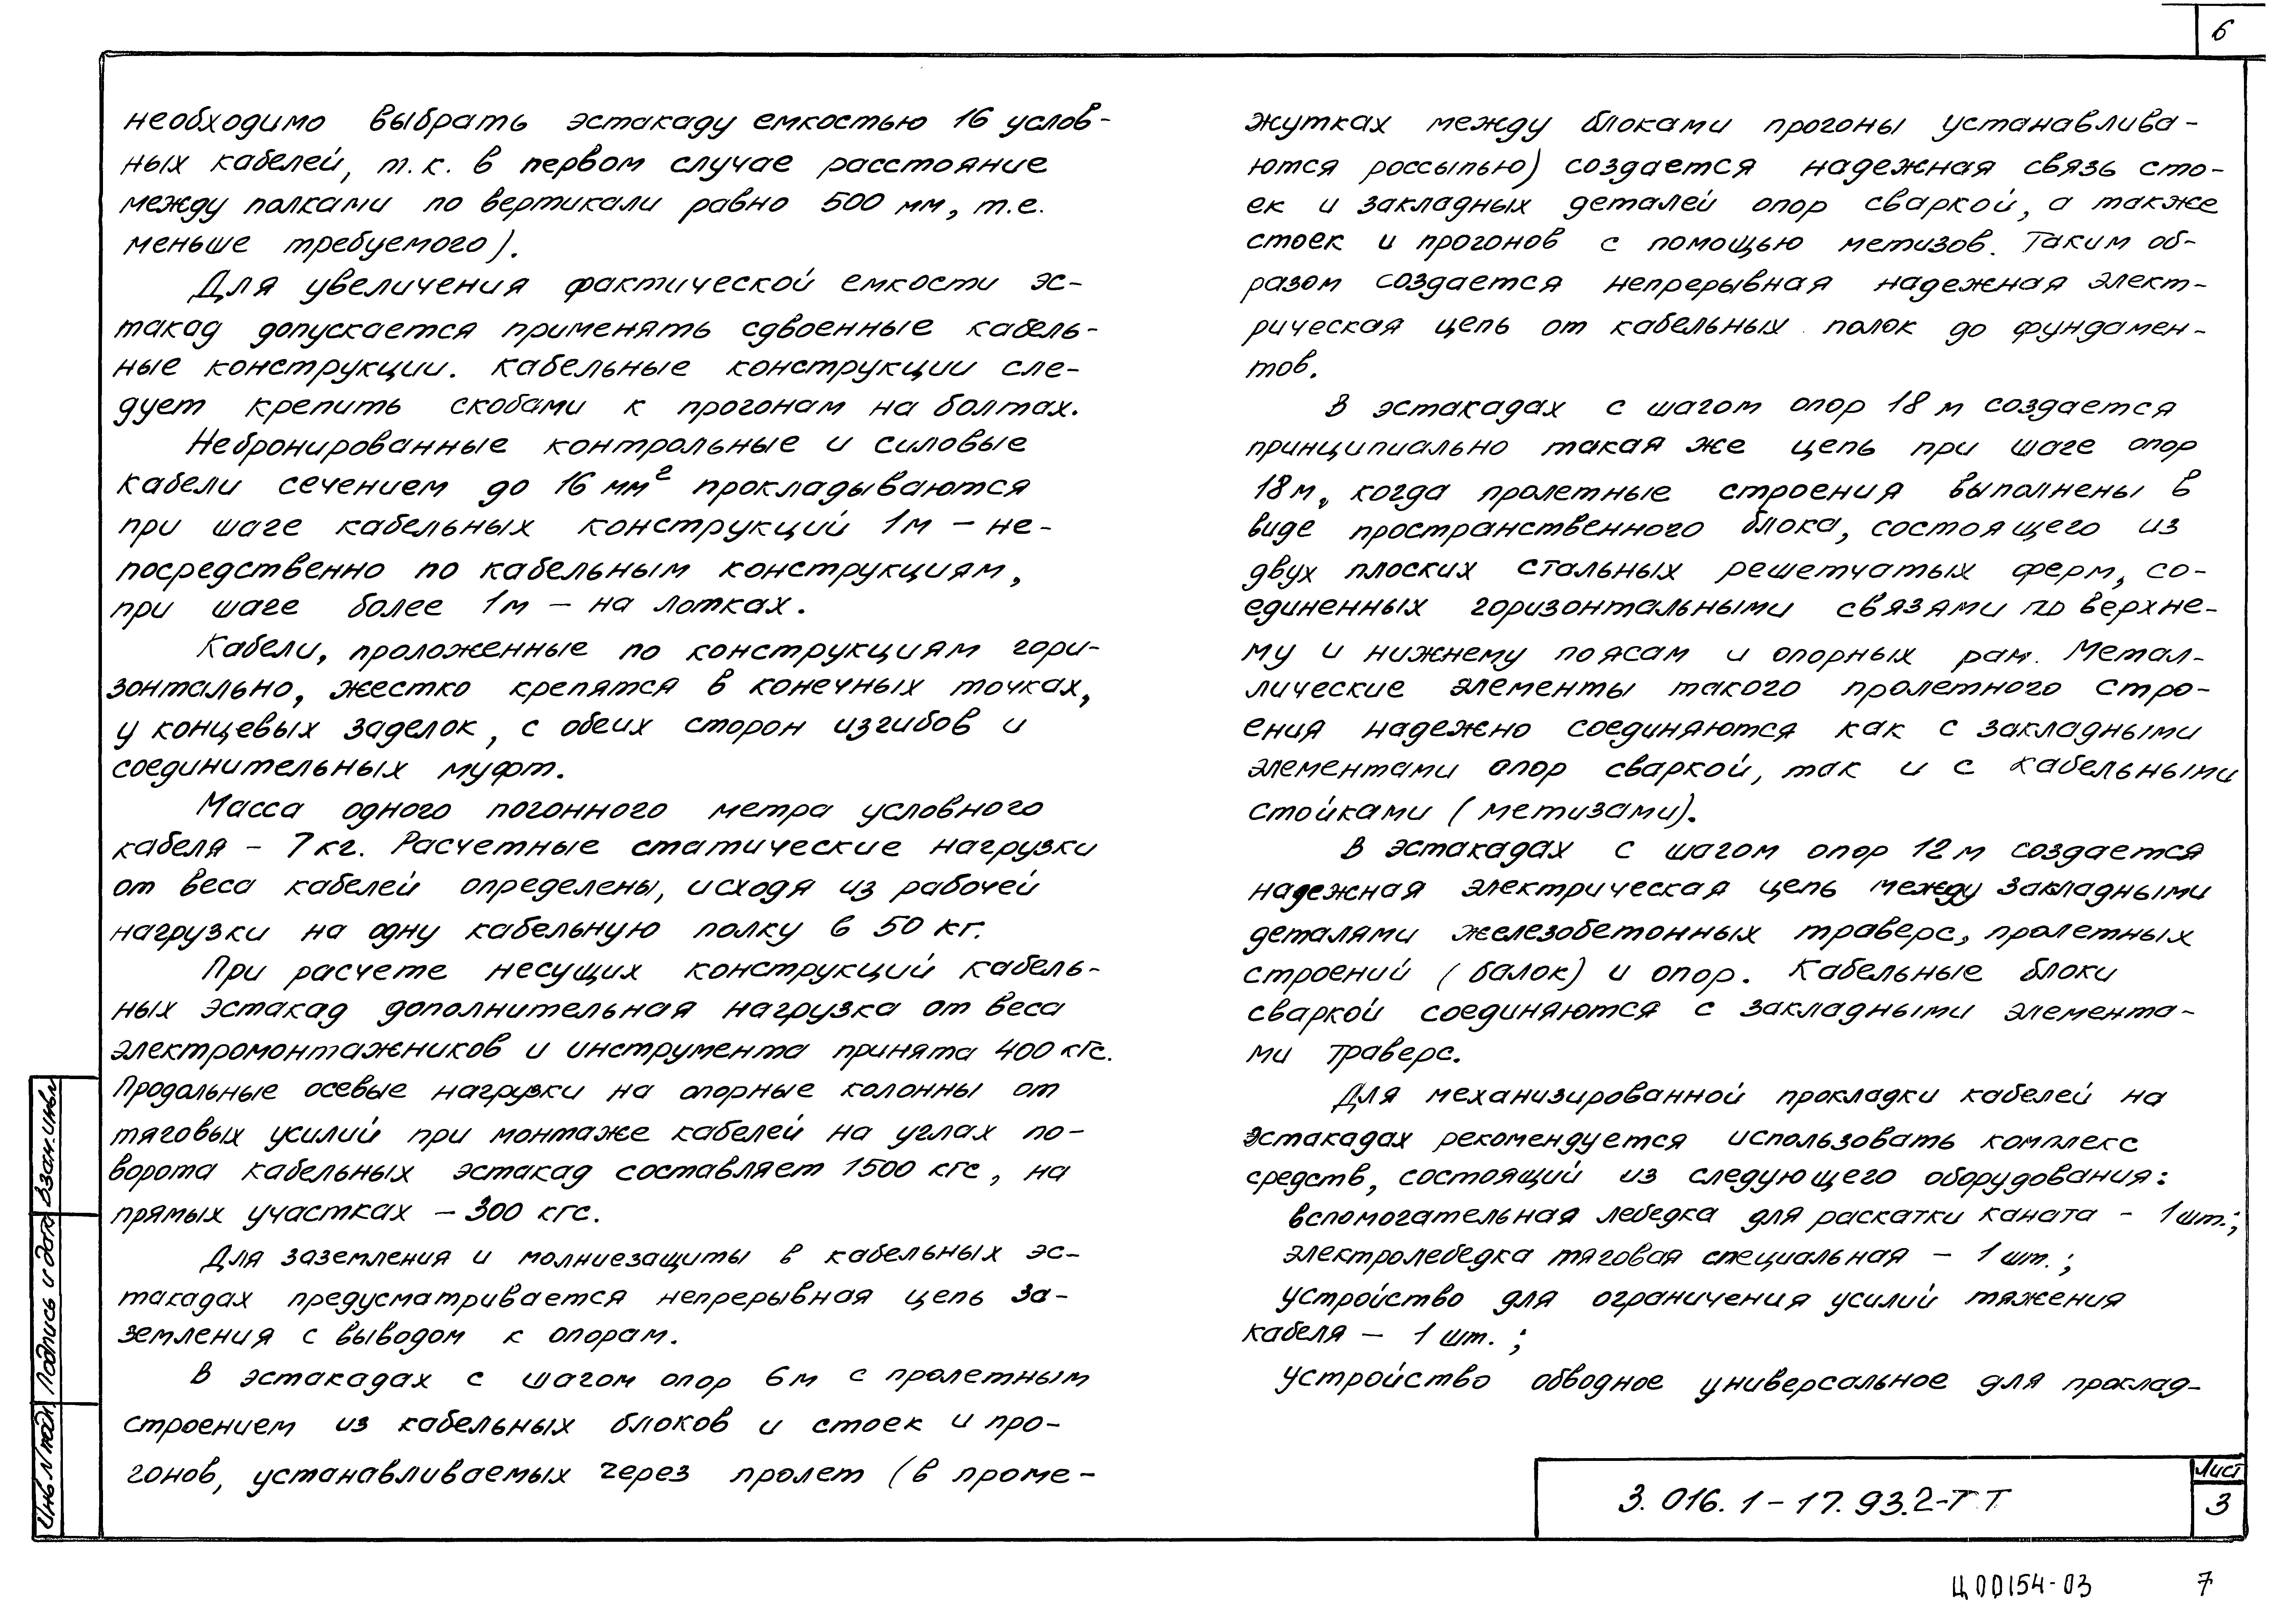 6
необходимо выбрать эстакаду емкостью 16 услов-
ных кабелей, т.к. в первом случае расстояние
между полками по вертикали равно 500 мм, т.е.
меньше требуемого).
Для увеличения фактической емкости эс-
такад допускается применять сдвоенные кабель-
ные конструкции. Кабельные конструкции сле-
дует крепить скобами к прогонам на болтах.
Небронированные контрольные и силовые
кабели сечением до 16 мм² прокладываются
при шаге кабельных конструкций 1м – не-
посредственно по кабельным конструкциям,
при шаге более 1м – на лотках.
Кабели, проложенные по конструкциям гори-
зонтально, жестко крепятся в конечных точках,
у концевых заделок, с обеих сторон изгибов и
соединительных муфт.
Масса одного погонного метра условного
кабеля – 7 кг. Расчетные статические нагрузки
от веса кабелей определены, исходя из рабочей
нагрузки на одну кабельную полку в 50 кг.
При расчете несущих конструкций кабель-
ных эстакад дополнительная нагрузка от веса
электромонтажников и инструмента принята 400 кгс.
Продольные осевые нагрузки на опорные колонны от
тяговых усилий при монтаже кабелей на углах по-
ворота кабельных эстакад составляет 1500 кгс, на
прямых участках – 300 кгс.
Для заземления и молниезащиты в кабельных эс-
такадах предусматривается непрерывная цепь за-
земления с выводом к опорам.
В эстакадах с шагом опор 6м с пролетным
строением из кабельных блоков и стоек и про-
гонов, устанавливаемых через пролет (в проме-
жутках между блоками прогоны устанавлива-
ются россыпью) создается надежная связь сто-
ек и закладных деталей опор сваркой, а также
стоек и прогонов с помощью метизов. Таким об-
разом создается непрерывная надежная элект-
рическая цепь от кабельных полок до фундамен-
тов.
В эстакадах с шагом опор 18 м создается
принципиально такая же цепь при шаге опор
18м, когда пролетные строения выполнены в
виде пространственного блока, состоящего из
двух плоских стальных решетчатых ферм, со-
единенных горизонтальными связями по верхне-
му и нижнему поясам и опорных рам. Метал-
лические элементы такого пролетного стро-
ения надежно соединяются как с закладными
элементами опор сваркой, так и с кабельными
стойками (метизами).
В эстакадах с шагом опор 12 м создается
надежная электрическая цепь между закладными
деталями железобетонных траверс, пролетных
строений (балок) и опор. Кабельные блоки
сваркой соединяются с закладными элемента-
ми траверс.
Для механизированной прокладки кабелей на
эстакадах рекомендуется использовать комплекс
средств, состоящий из следующего оборудования:
вспомогательная лебедка для раскатки каната – 1шт.;
электролебедка тяговая специальная – 1 шт.;
устройство для ограничения усилий тяжения
кабеля – 1 шт.;
устройство обводное универсальное для проклад-
Взам.инв.N
Подпись и дата
Инв.N подл.
3.016.1-17.93.2-ТТ
Лист
3
Ц00154-03
7